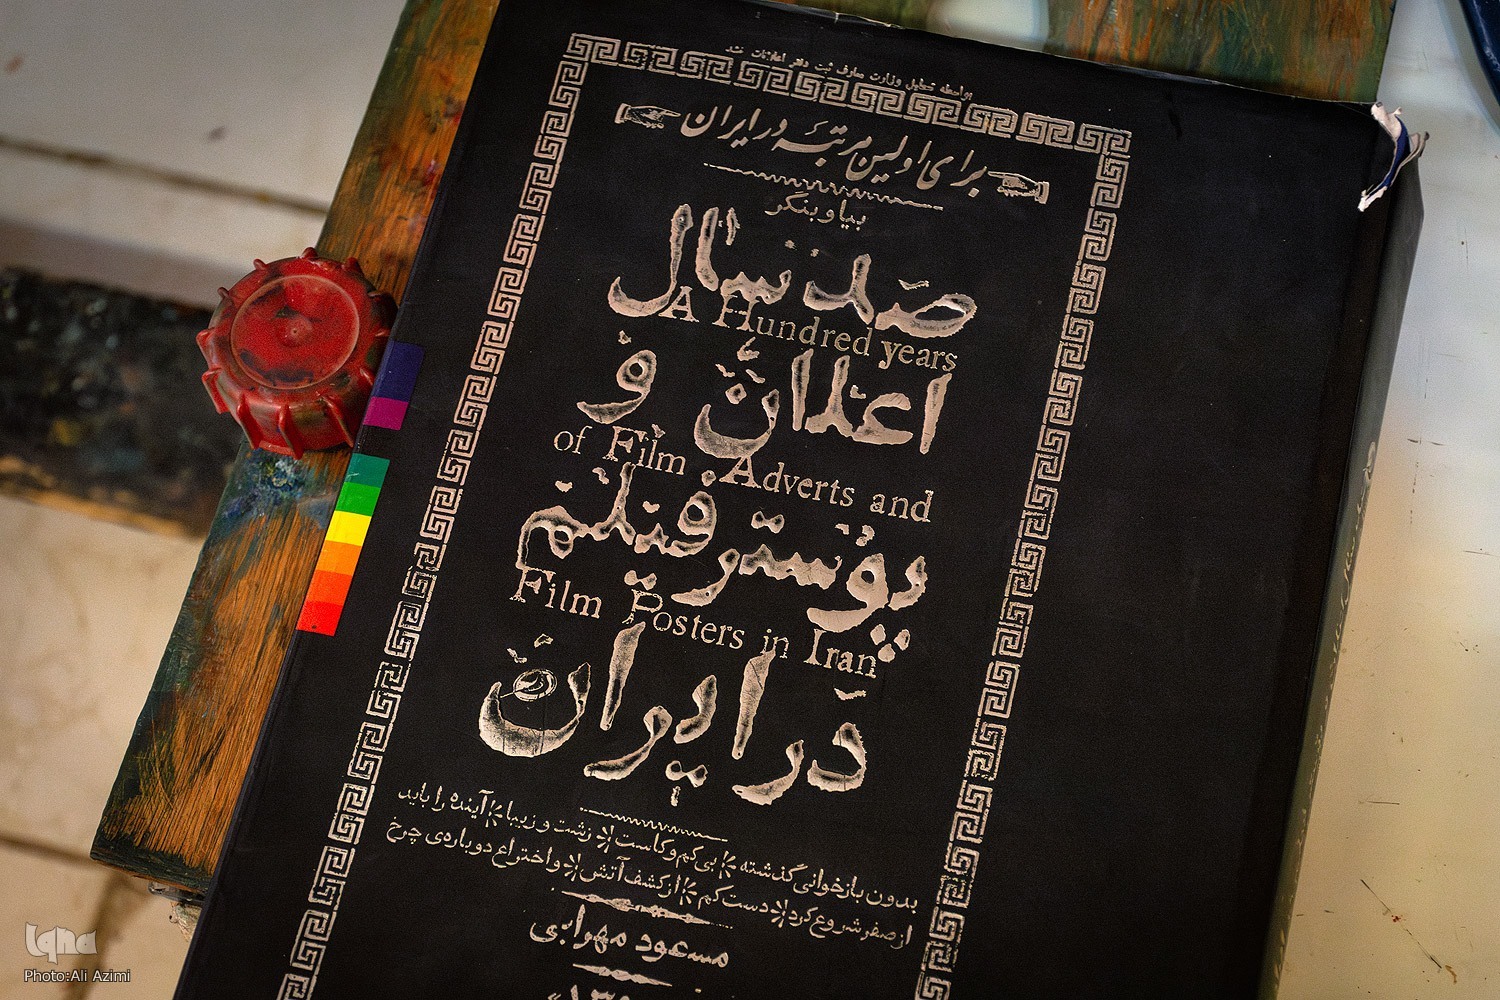 بواسطه تعطیل وزارت معارف ثبت دفتر اعلانات نشد
برای اولین مرتبهٔ در ایران
بیا و بنگر
صد سال
A Hundred years
اعلان و
of Film Adverts and
پوستر فیلم
Film Posters in Iran
در ایران
بدون بازخوانی گذشته بی‌کم‌وکاست زشت و زیبا آینده را باید
از صفر شروع کرد دست کم از کشف آتش و اختراع دوباره‌ی چرخ
مسعود مهرابی
iqna
Photo:Ali Azimi